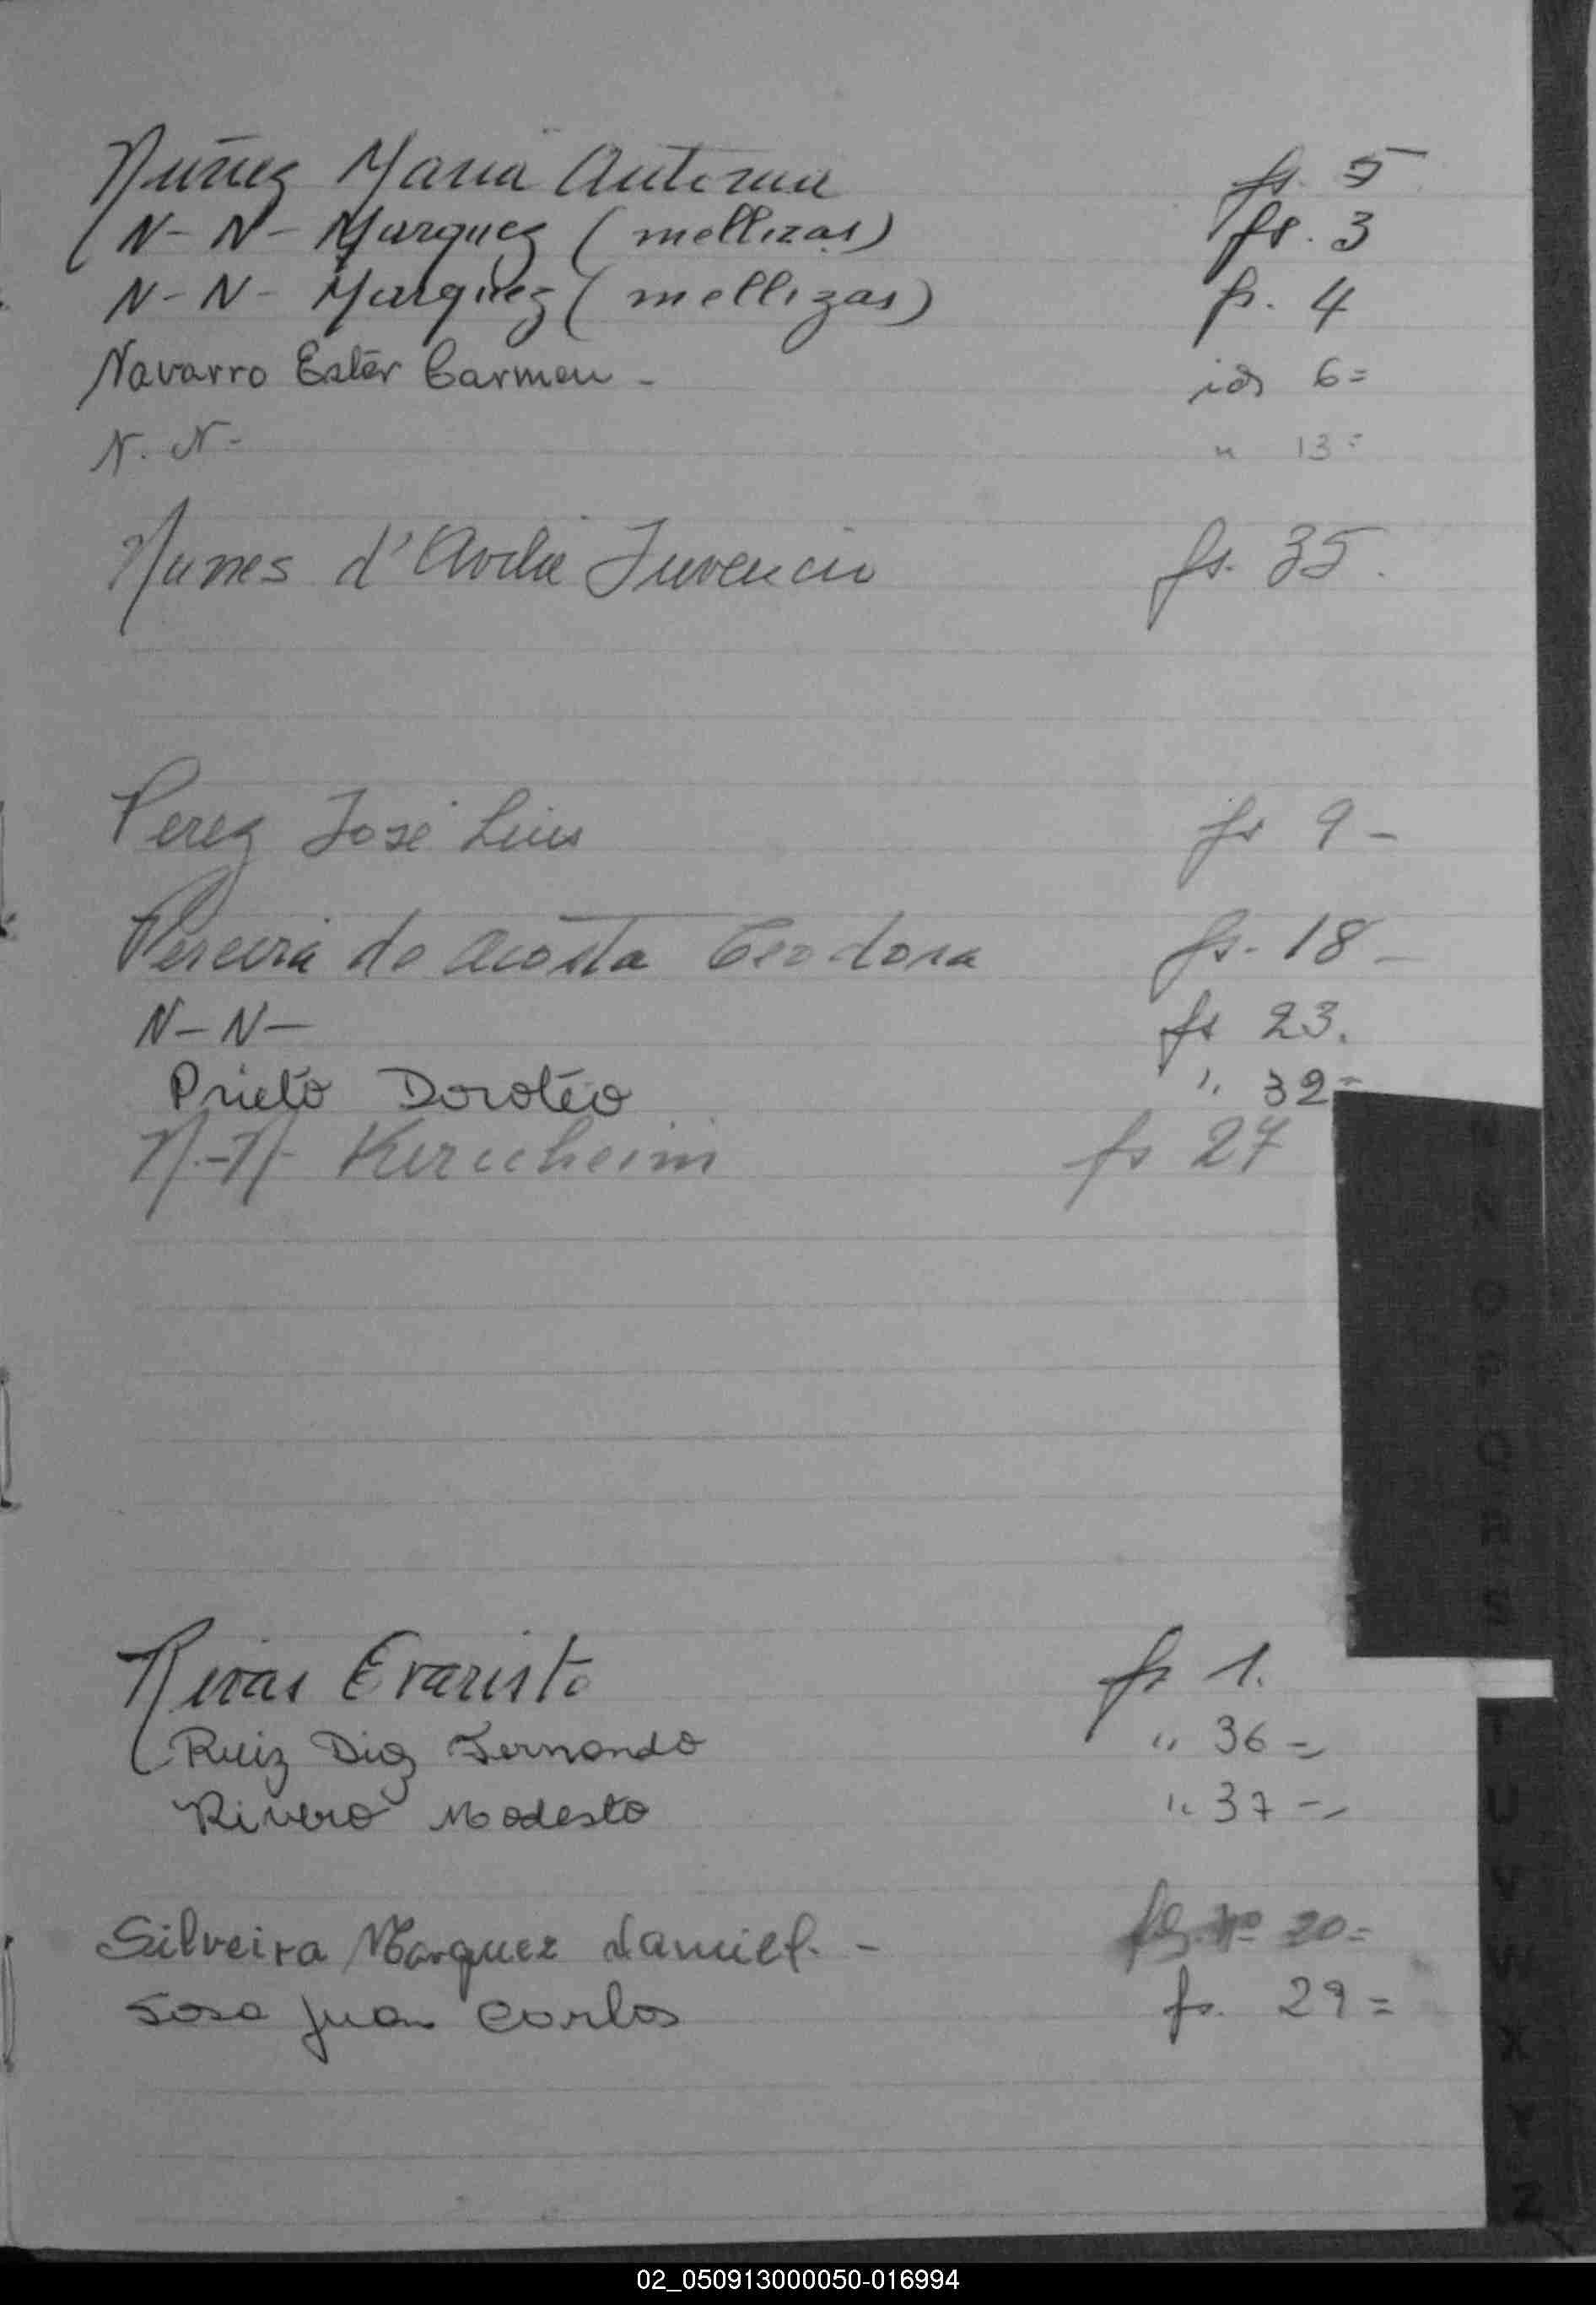 Nuñez Maria Antonia fs. 5
N-N- Marquez (mellizas) fs. 3
N-N- Marquez (mellizas) fs. 4
Navarro Ester Carmen - id 6=
N. N- " 13=
Nunes d'Avila Juvencio fs. 35.
Perez José Luis fs 9-
Pereira de Acosta Teodora fs. 18-
N-N- fs 23.
Prieto Doroteo " 32=
N.-N- fs 27
Rivas Evaristo fs 1.
Ruiz Diaz Fernando " 36=
Rivero Modesto " 37-
Silveira Marquez Daniel. - fs. Nº 20=
Sosa Juan Carlos fs. 29=
N
O
P
Q
R
S
T
U
V
W
X
Y
Z
02_050913000050-016994